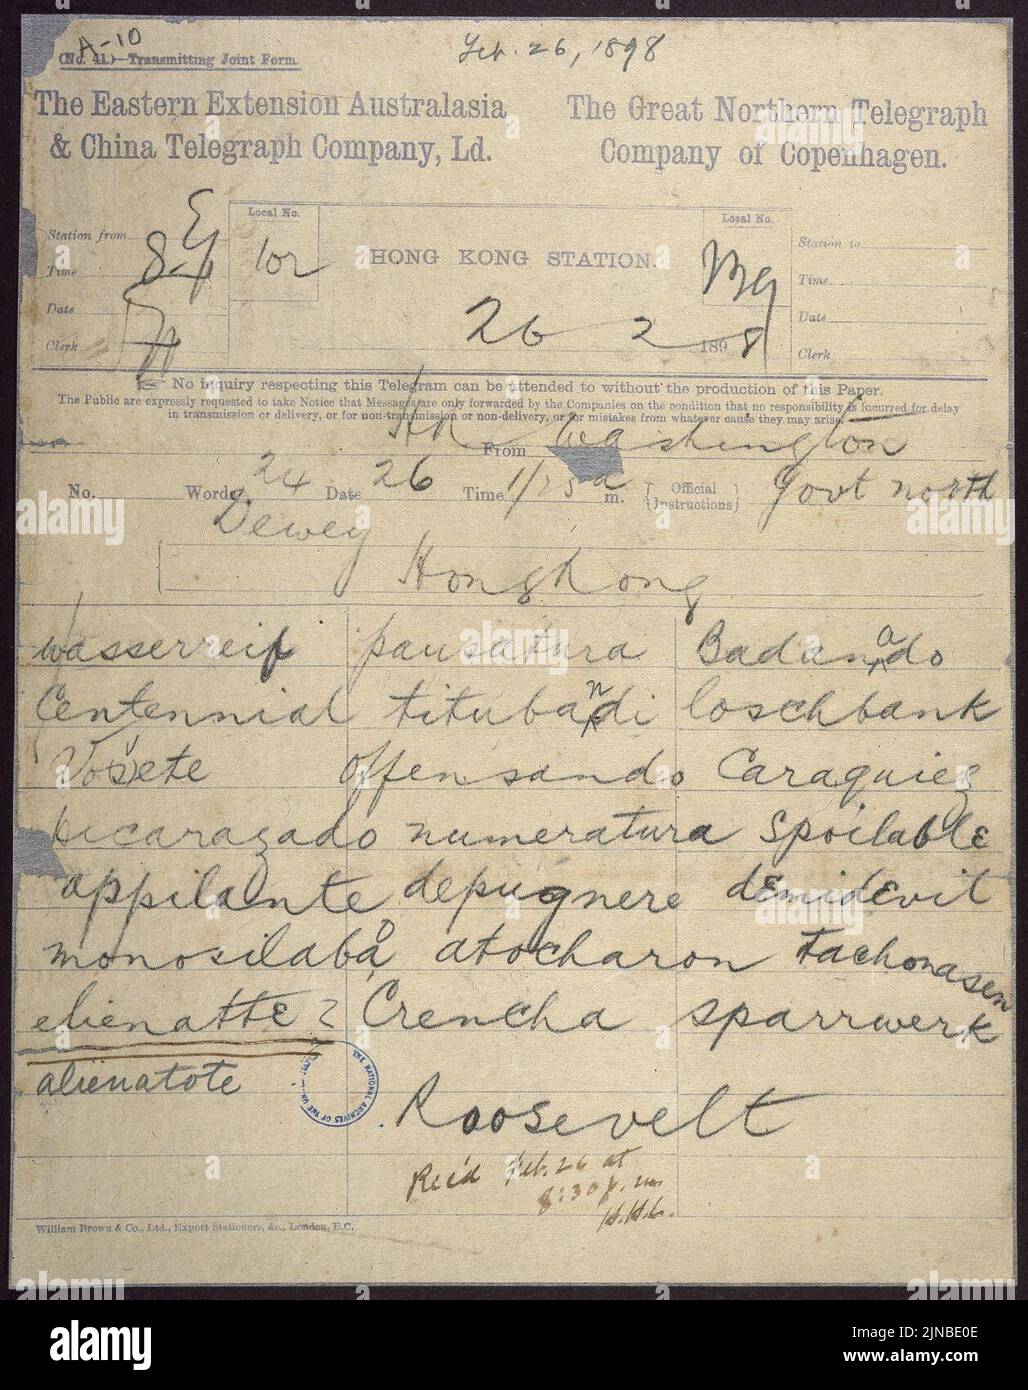 A-10
Feb. 26, 1898
(No. 41.)—Transmitting Joint Form.
The Eastern Extension Australasia
& China Telegraph Company, Ld.
The Great Northern Telegraph
Company of Copenhagen.
Station from
Time
Date
Clerk
Local No.
102
HONG KONG STATION.
26 2 1898
Local No.
Station to
Time
Date
Clerk
No inquiry respecting this Telegram can be attended to without the production of this Paper.
The Public are expressly requested to take Notice that Messages are only forwarded by the Companies on the condition that no responsibility is incurred for delay
in transmission or delivery, or for non-transmission or non-delivery, or for mistakes from whatever cause they may arise.
From Washington
No. Words. 24 Date 26 Time m. Official Instructions Govt north
Dewey
Hongkong
wasserreif pausatura Badanado
Centennial titubandi loschbank
Vosete offensando Caraquiez
picarazado numeratura spoilable
appilante depugnere demidevil
monosilabo atocharon tachonasen
elienatte ? Crencha sparrwerk
alienatote
THE NATIONAL ARCHIVES OF THE
Roosevelt
Rec'd Feb. 26 at
8:30 p.m.
H.H.C.
William Brown & Co., Ltd., Export Stationers, &c., London, E.C.
alamy
a
alamy
Image ID: 2JNBE0E
www.alamy.com